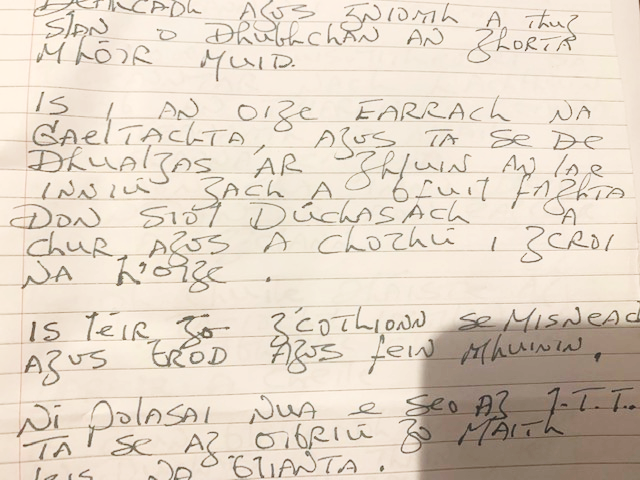 AGUS GNIOMH A THUG
SLÁN Ó DHUBHCHAN AN GHORTA
MHÓIR MUID.
IS I AN OIGE EARRACH NA
GAELTACHTA, AGUS TA SE DE
DHUALGAS AR GHLUIN AN LAE
INNIU GACH A BFUIL FAGHTA
DON SIOL DÚCHASACH A
CHUR AGUS A CHOTHÚ I GCROI
NA H'OIGE.
IS LEIR GO G'COTHIONN SE MISNEAC
AGUS TROD AGUS FEIN MHUININ.
NI POLASAI NUA E SEO AG I.T.T..
TA SE AG OIBRIU GO MAITH
LEIS NA BLIANTA.